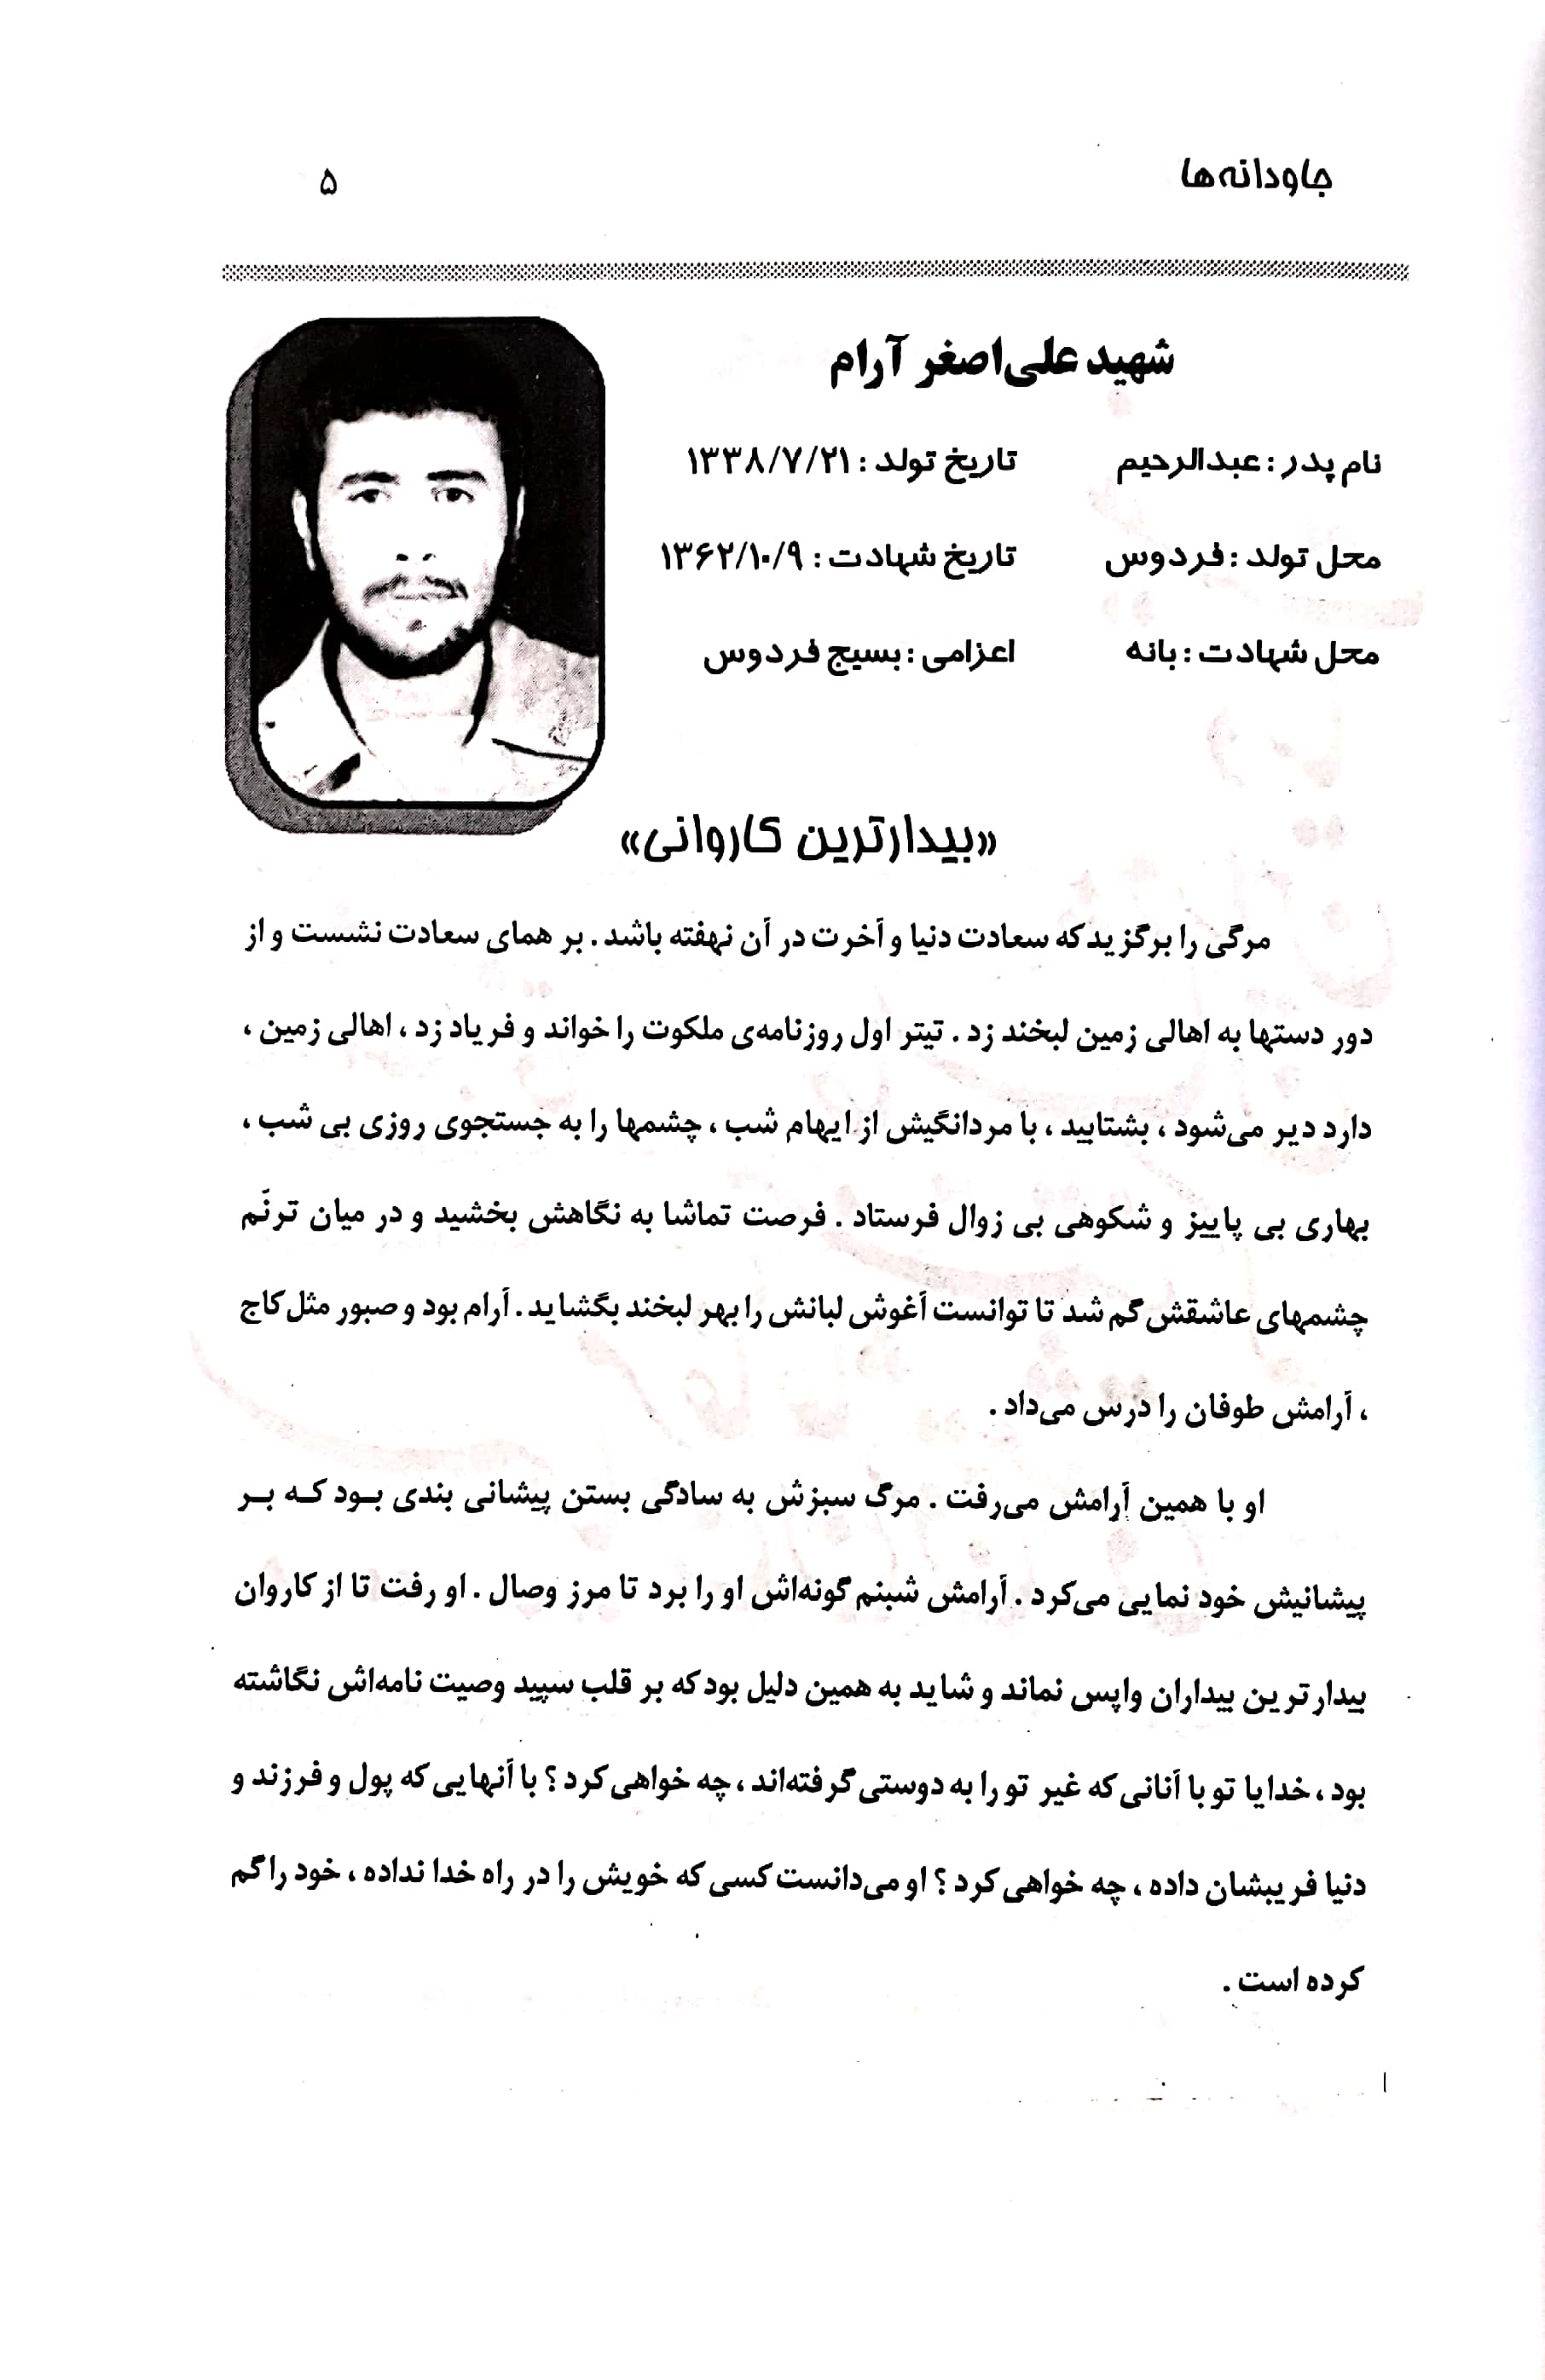 جاودانه‌ها
۵
شهید علی‌اصغر آرام
نام پدر : عبدالرحیم
تاریخ تولد : ۱۳۳۸/۷/۲۱
محل تولد : فردوس
تاریخ شهادت : ۱۳۶۲/۱۰/۹
محل شهادت : بانه
اعزامی : بسیج فردوس
«بیدارترین کاروانی»
مرگی را برگزید که سعادت دنیا و آخرت در آن نهفته باشد . بر همای سعادت نشست و از
دور دستها به اهالی زمین لبخند زد . تیتر اول روزنامه‌ی ملکوت را خواند و فریاد زد ، اهالی زمین ،
دارد دیر می‌شود ، بشتابید ، با مردانگیش از ایهام شب ، چشمها را به جستجوی روزی بی شب ،
بهاری بی پاییز و شکوهی بی زوال فرستاد . فرصت تماشا به نگاهش بخشید و در میان ترنّم
چشمهای عاشقش گم شد تا توانست آغوش لبانش را بهر لبخند بگشاید . آرام بود و صبور مثل کاج
، آرامش طوفان را درس می‌داد .
او با همین آرامش می‌رفت . مرگ سبزش به سادگی بستن پیشانی بندی بود که بر
پیشانیش خود نمایی می‌کرد . آرامش شبنم گونه‌اش او را برد تا مرز وصال . او رفت تا از کاروان
بیدارترین بیداران واپس نماند و شاید به همین دلیل بود که بر قلب سپید وصیت نامه‌اش نگاشته
بود ، خدایا تو با آنانی که غیر تو را به دوستی گرفته‌اند ، چه خواهی کرد ؟ با آنهایی که پول و فرزند و
دنیا فریبشان داده ، چه خواهی کرد ؟ او می‌دانست کسی که خویش را در راه خدا نداده ، خود را گم
کرده است .